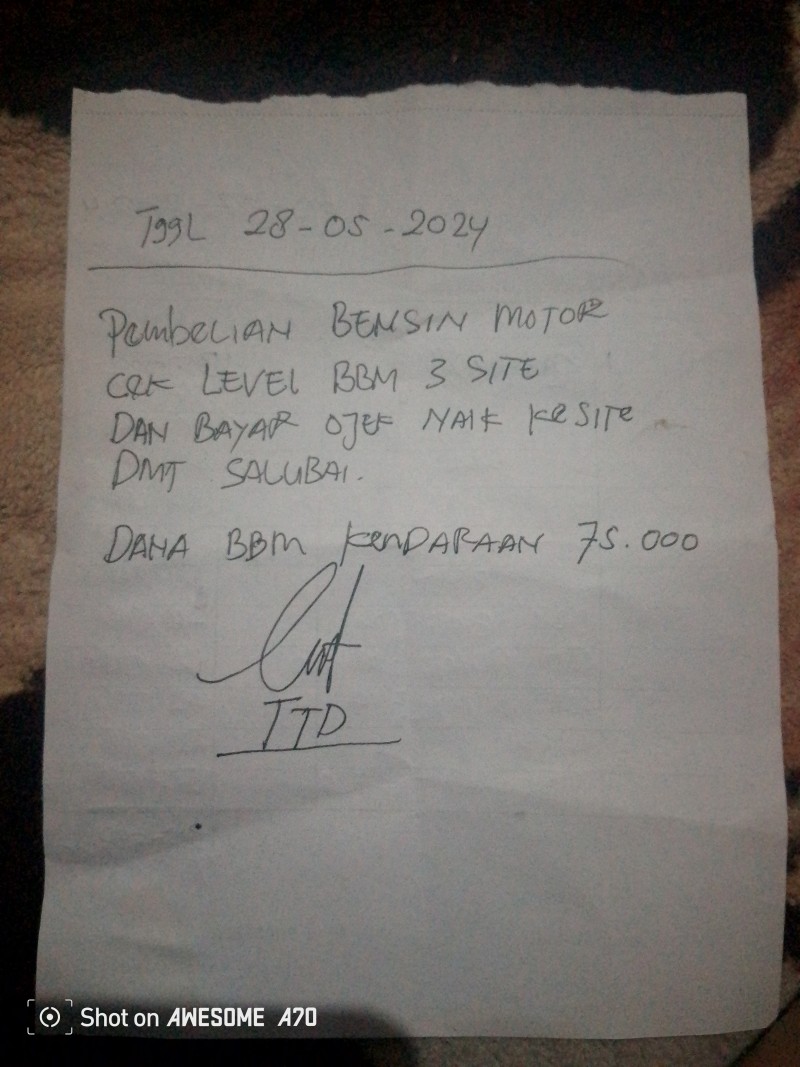 Tggl 28-05-2024
Pembelian BENSIN MOTOR
cek LEVEL BBM 3 SITE
DAN BAYAR OJEK NAIK Ke SITe
DMT SALUBAI.
DANA BBM KenDARAAN 75.000
TTD
Shot on AWESOME A70